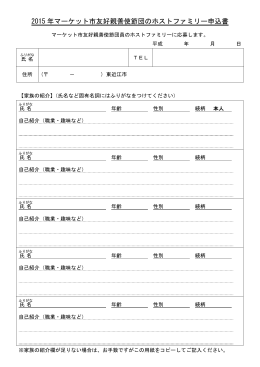 2015 年マーケット市友好親善使節団のホストファミリー申込書
マーケット市友好親善使節団員のホストファミリーに応募します。
平成 年 月 日
ふりがな
氏 名
ＴＥＬ
住所 （〒 － ）東近江市
【家族の紹介】（氏名など固有名詞にはふりがなをつけてください）
ふりがな
氏 名 年齢 性別 続柄 本人
自己紹介（職業・趣味など）
ふりがな
氏 名 年齢 性別 続柄
自己紹介（職業・趣味など）
ふりがな
氏 名 年齢 性別 続柄
自己紹介（職業・趣味など）
ふりがな
氏 名 年齢 性別 続柄
自己紹介（職業・趣味など）
ふりがな
氏 名 年齢 性別 続柄
自己紹介（職業・趣味など）
※家族の紹介欄が足りない場合は、お手数ですがこの用紙をコピーしてご記入ください。